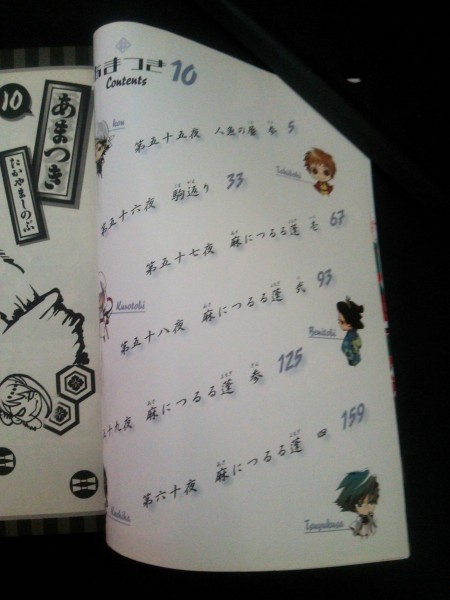 10
あまつき
たかやましのぶ
あまつき 10
Contents
kon
第五十五夜 人魚の唇 参 5
Tokidoki
第五十六夜 駒返り 33
第五十七夜 麻につるる蓬 壱 67
Kurotobi
第五十八夜 麻につるる蓬 弐 93
Bonitobi
五十九夜 麻につるる蓬 参 125
第六十夜 麻につるる蓬 四 159
Tsuyukusa